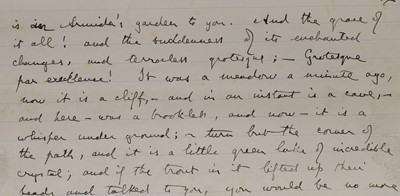 is in Armida's garden to you. And the grace of
it all! and the suddenness of its enchanted
changes, and terrorless grotesque; – Grotesque
par excellence! It was a meadow a minute ago,
now it is a cliff, – and in an instant is a cave, –
and here – was a brooklet, and now – it is a
whisper under ground; – turn but the corner of
the path, and it is a little green lake of incredible
crystal; and if the trout in it lifted up their
heads and talked to you, you would be no more